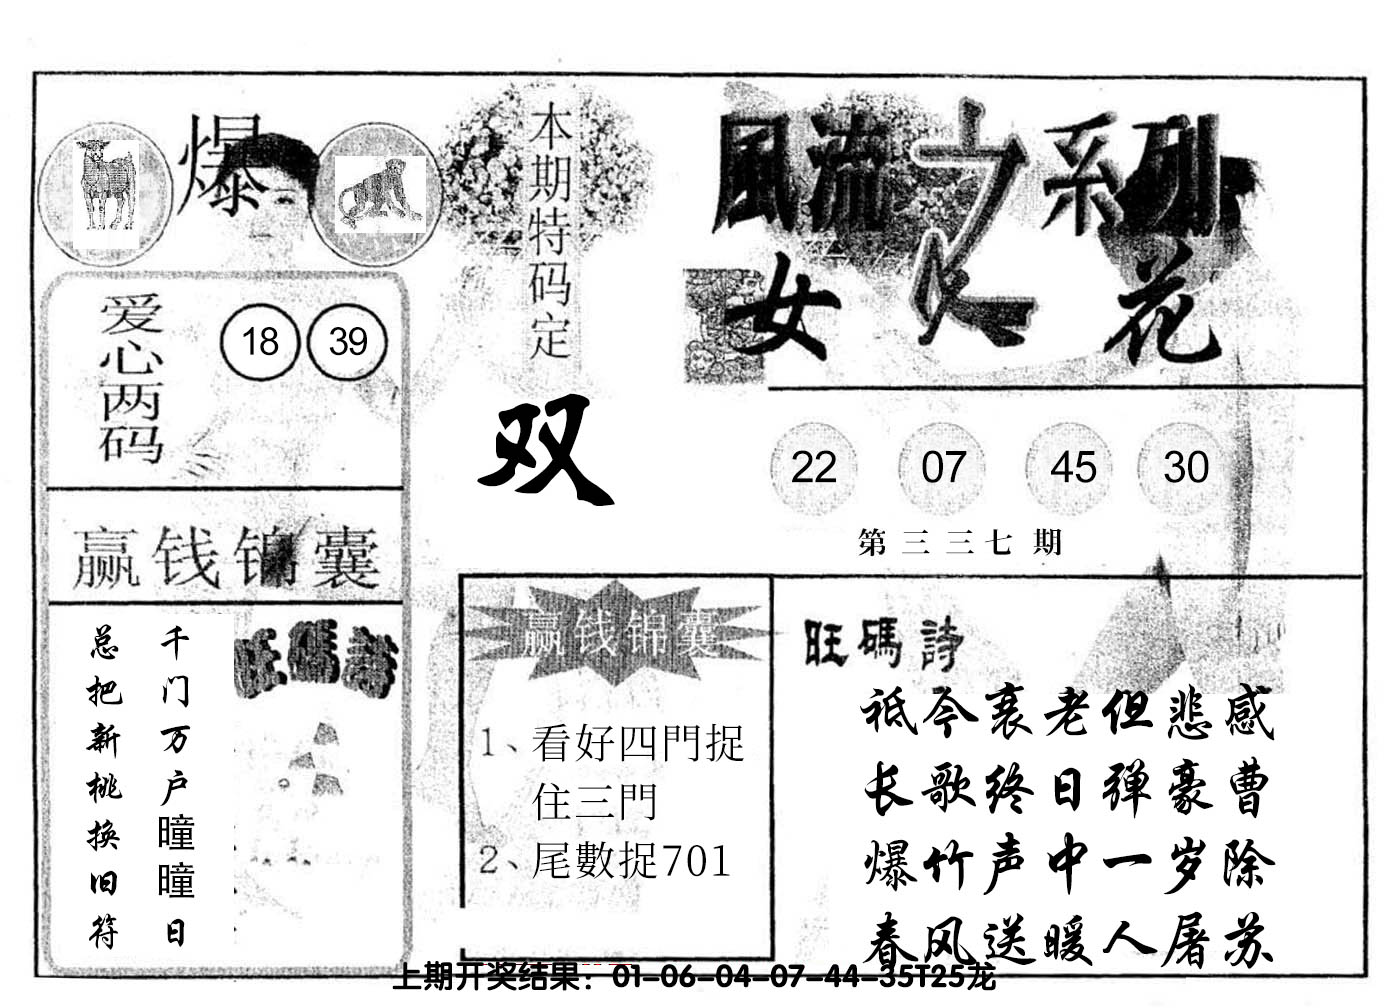 爆
本期特码定
双
風流之系列
女人花
爱心两码
18 39
22 07 45 30
第三三七期
赢钱锦囊
千门万户曈曈日
总把新桃换旧符
旺碼詩
赢钱锦囊
1、看好四門捉
住三門
2、尾數捉701
旺碼詩
祗今衰老但悲感
长歌终日弹豪曹
爆竹声中一岁除
春风送暖人屠苏
上期开奖结果：01-06-04-07-44-35T25龙